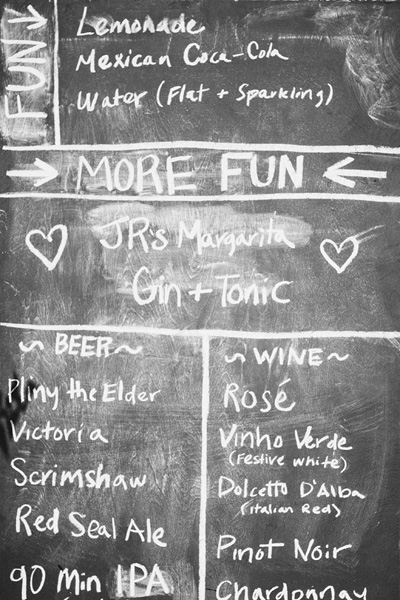 FUN
Lemonade
Mexican Coca-Cola
Water (Flat + Sparkling)
MORE FUN
JR's Margarita
Gin + Tonic
BEER
Pliny the Elder
Victoria
Scrimshaw
Red Seal Ale
90 Min IPA
WINE
Rosé
Vinho Verde
(Festive White)
Dolcetto D'Alba
(Italian Red)
Pinot Noir
Chardonnay